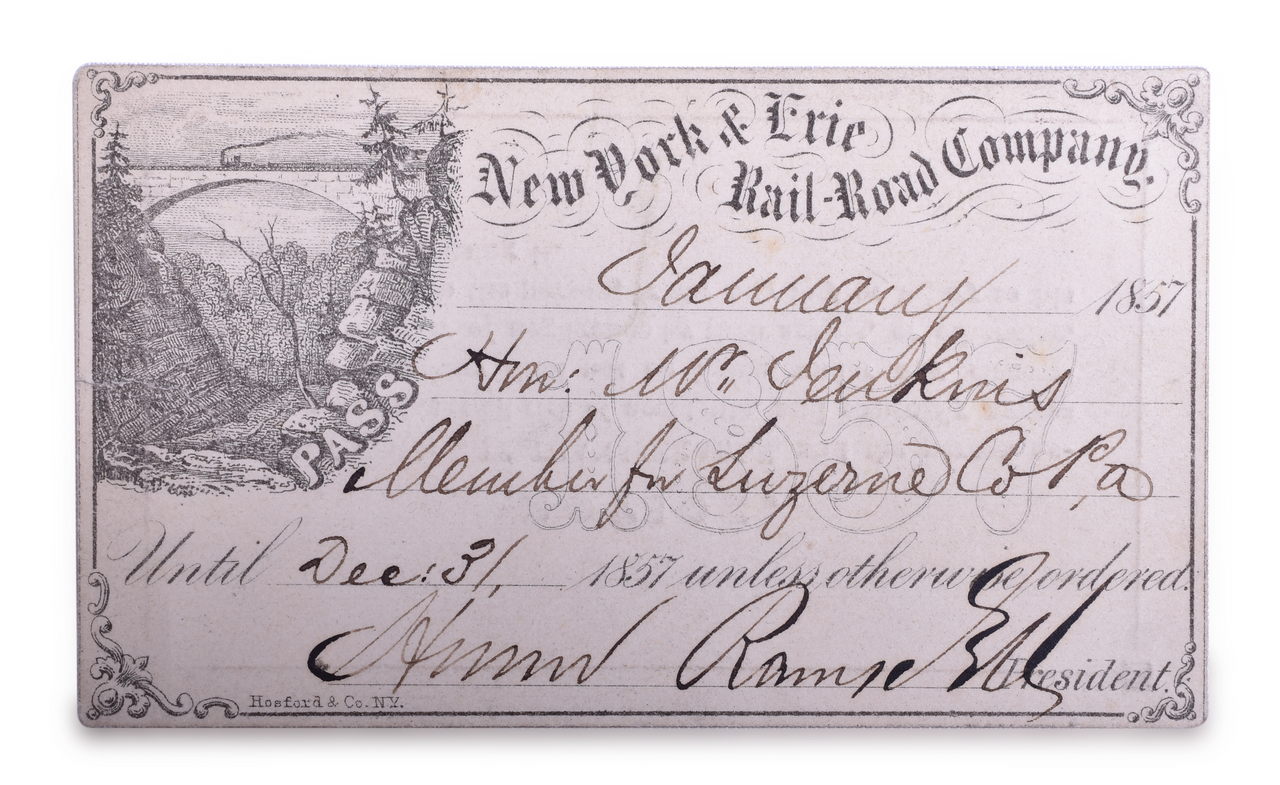 New York & Erie
Rail-Road Company.
January 1857
Hon: Mr. Jenkins
PASS
Member for Luzerne Co Pa
1857
Until Dec: 31, 1857 unless otherwise ordered.
Ramsdell
President.
Hosford & Co. N.Y.